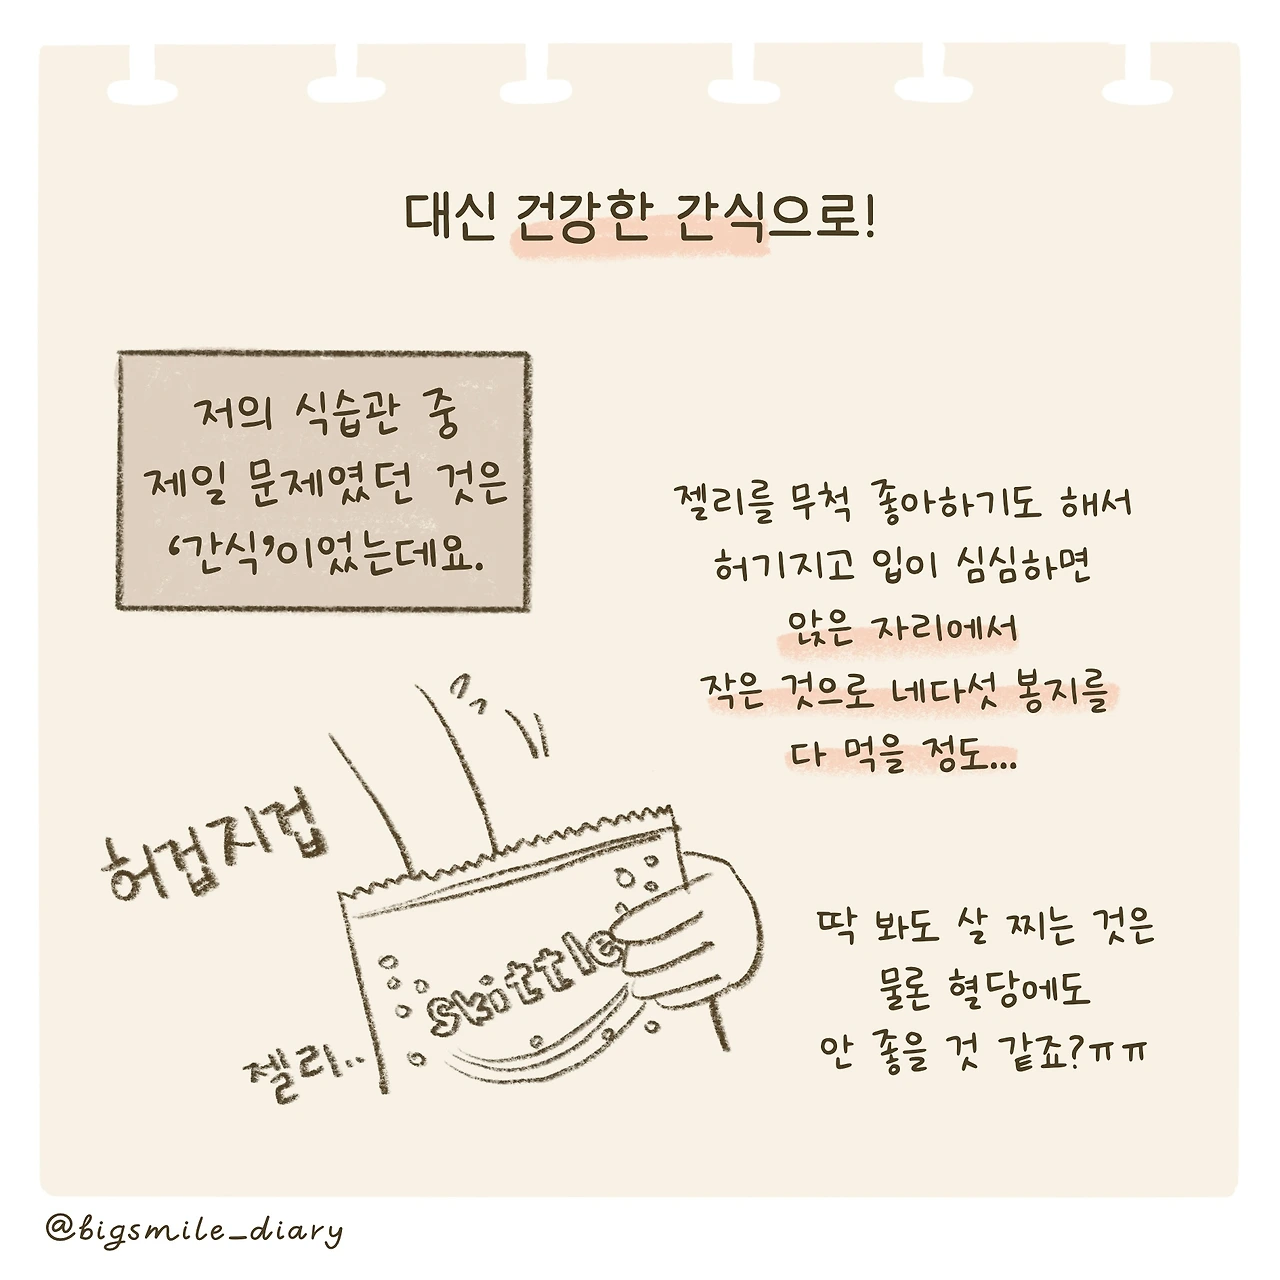 대신 건강한 간식으로!
저의 식습관 중
제일 문제였던 것은
‘간식’이었는데요.
젤리를 무척 좋아하기도 해서
허기지고 입이 심심하면
앉은 자리에서
작은 것으로 네다섯 봉지를
다 먹을 정도...
허겁지겁
skittle
젤리..
딱 봐도 살 찌는 것은
물론 혈당에도
안 좋을 것 같죠?ㅠㅠ
@bigsmile_diary